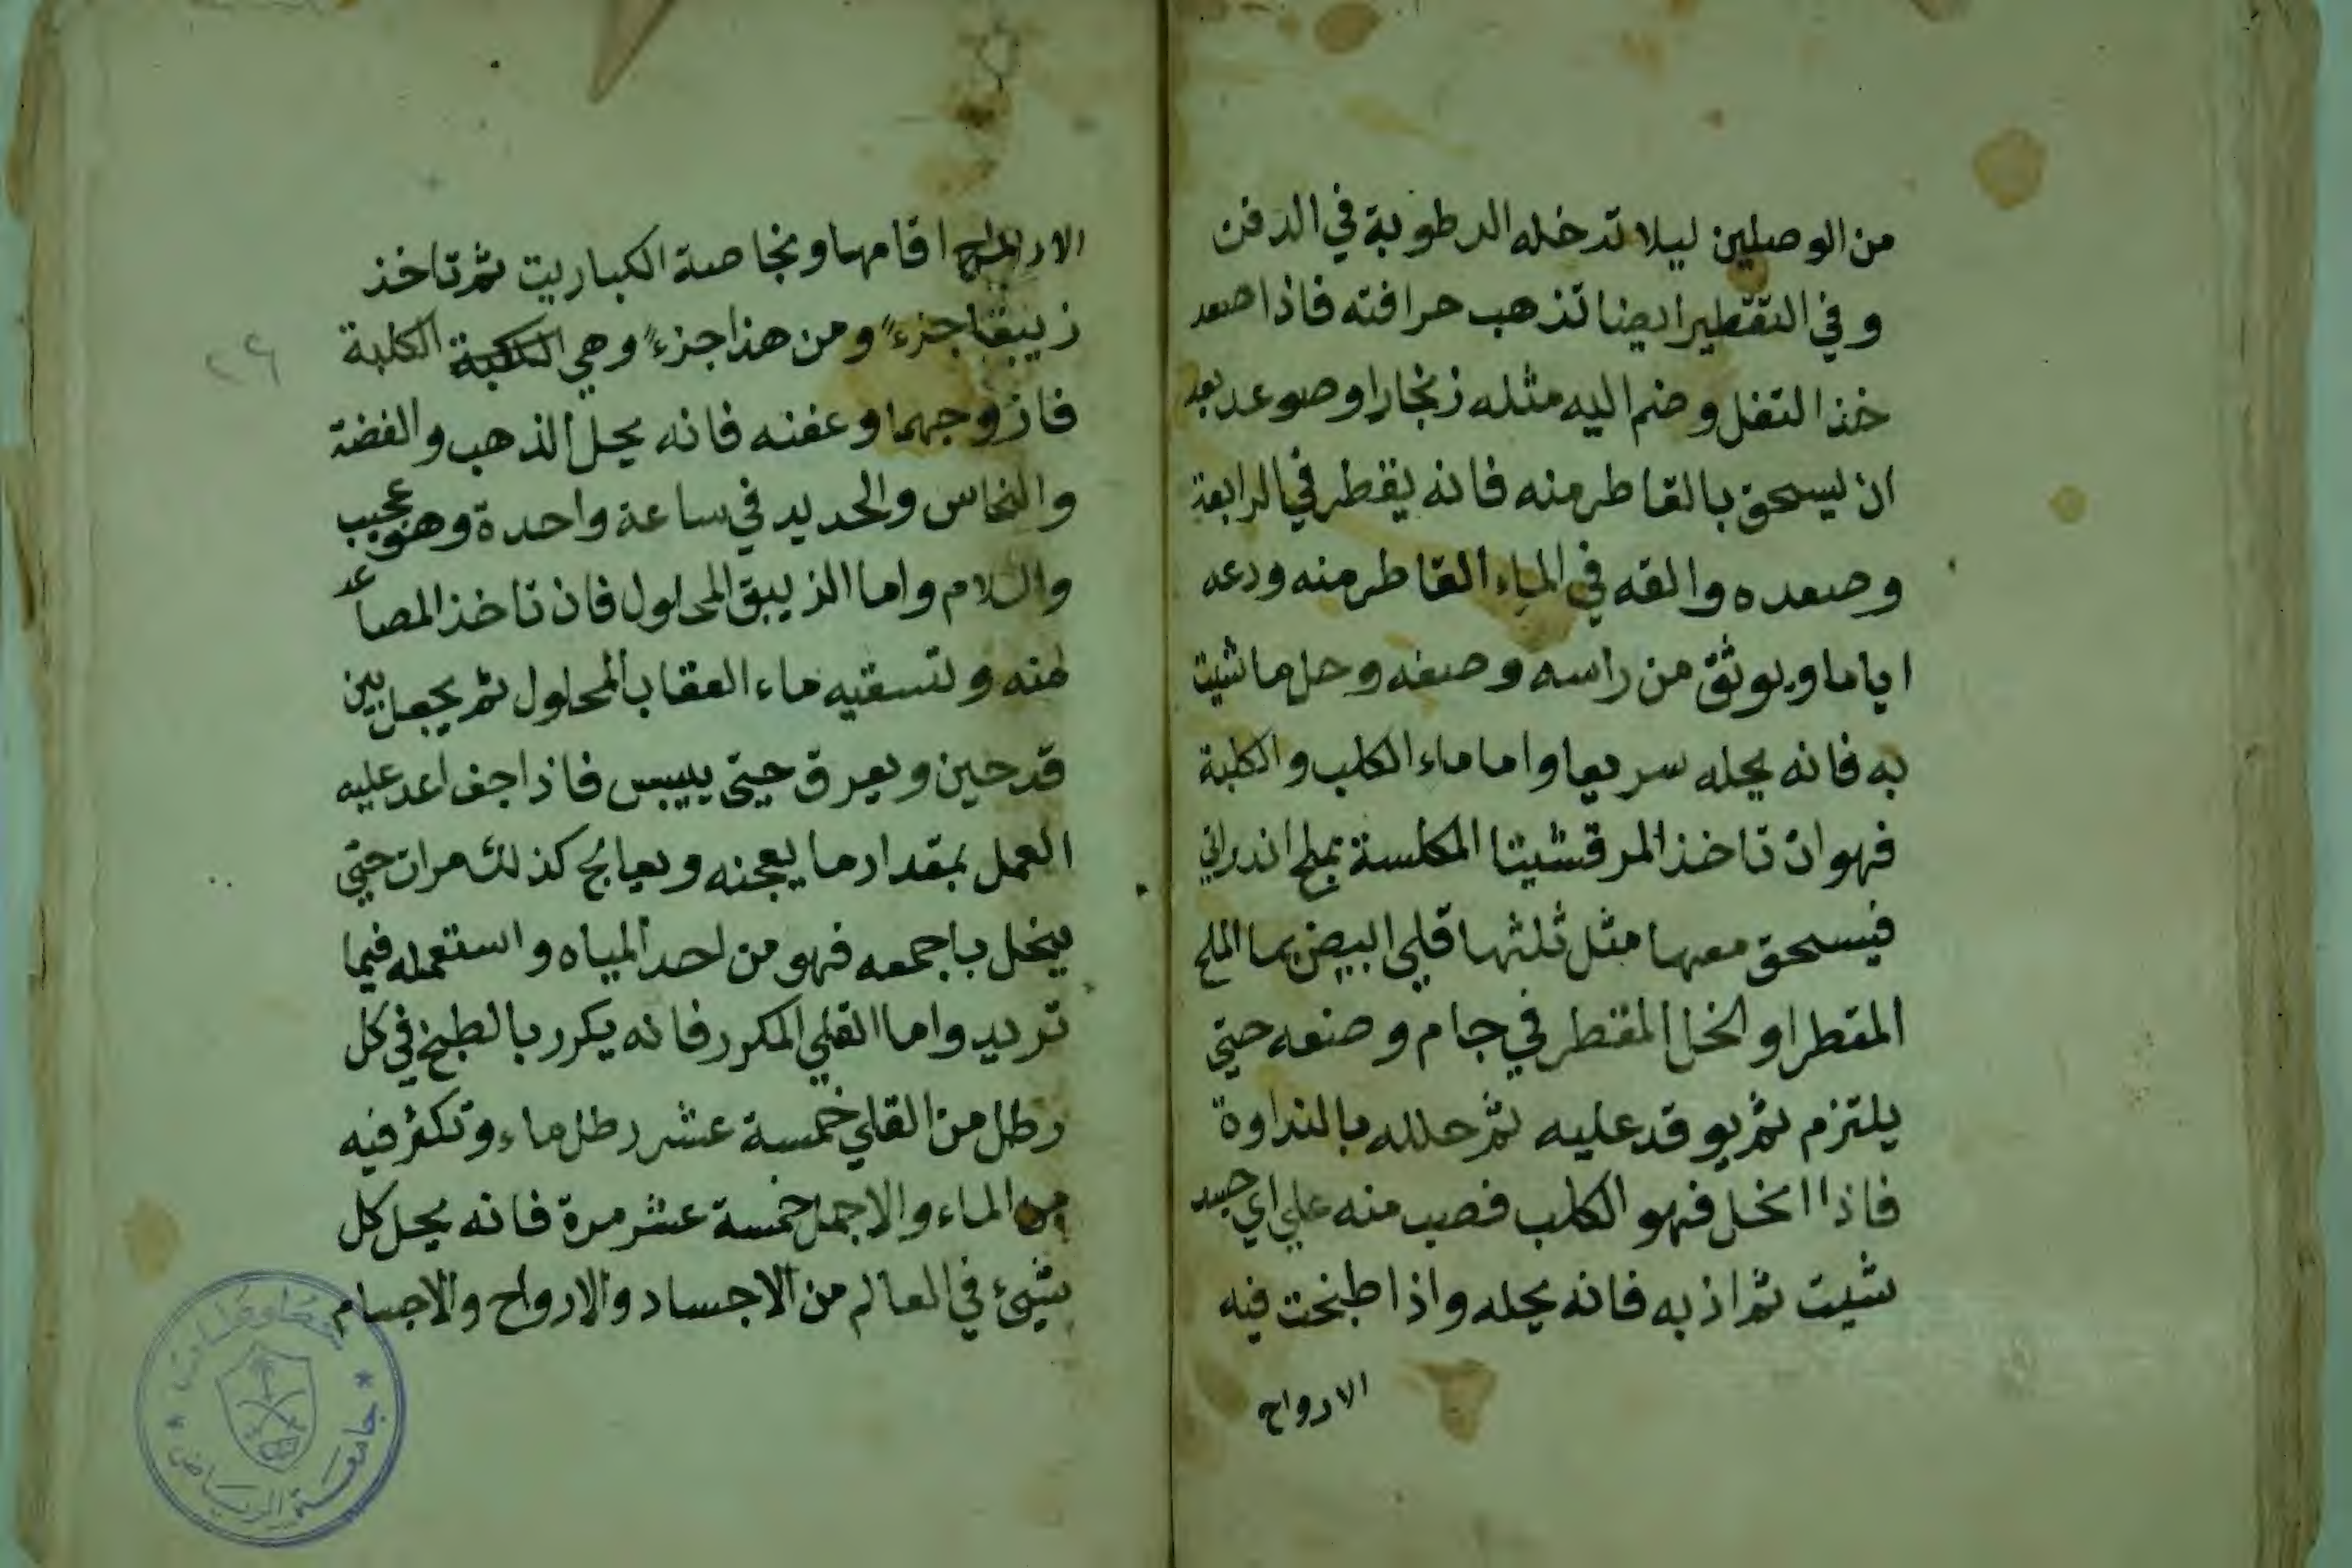 من الوصلين ليلا تدخله الرطوبة في الدفن
وفي التقطير ايضا تذهب حرافته فاذا صعد
خذ التفل وضم اليه مثله زنجارا وصوعد بعد
ان يسحق بالقاطر منه فانه يقطر في الرابعة
وصعده والقه في الماء القاطر منه ودعه
اياما ويوثق من راسه وصفه وحل ما شيت
به فانه يحله سريعا واما ماء الكلب والكلبة
فهو ان تاخذ المرقشيتا المكلسة بملح اندراني
فيسحق معها مثل ثلثها قلي البيض بما الملح
المقطر او الخل المقطر في جام وصنعه حتي
يلتزم ثم يوقد عليه ثم حلله بالنداوة
فاذا انحل فهو الكلب فصب منه علي اي جسد
شيت ثم اذبه فانه يحله واذا طبخت فيه
الارواح
الارواح اقامها ونجاصة الكباريت ثم تاخذ
زيبقا جزءً ومن هذا جزءً وهي الكلبة
فازوجهما وعفنه فانه يحل الذهب والفضة
والنحاس والحديد في ساعة واحدة وهو عجيب
والسلام واما الزيبق المحلول فان تاخذ المصاعد
منه وتسقيه ماء العقاب المحلول ثم يجعل بين
قدحين ويعرق حتي ييبس فاذا جف اعد عليه
العمل بمقدار ما يعجنه ويعالج كذلك مرات حتي
ينحل باجمعه فهو من احد المياه واستعمله فيما
تريد واما القلي المكرر فانه يكرر بالطبخ في كل
رطل من القلي خمسة عشر رطل ماء وتكثر فيه
من الماء والاجمل خمسة عشر مرة فانه يحل كل
شيئ في العالم من الاجساد والارواح والاجسام
٢٦
جامعة الرياض